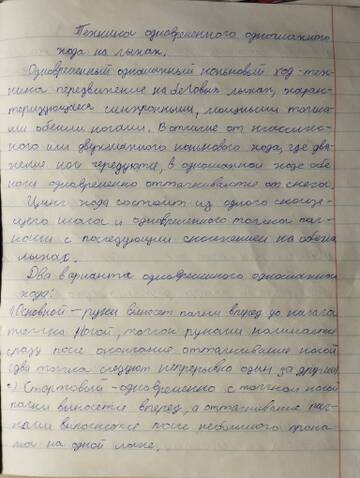 Техника одновременного одношажного
хода на лыжах.
Одновременный одношажный коньковый ход - тех-
ника передвижение на беговых лыжах, харак-
теризующаяся синхронными, мощными толчка-
ми обеими ногами. В отличие от классичес-
кого или двухшажного конькового хода, где дви-
жение ног чередуются, в одношажном ходе обе
ноги одновременно отталкиваются от снега.
Цикл хода состоит из одного скользя-
щего шага и одновременного толчка пал-
ками с последующим скольжением на обеих
лыжах.
Два варианта одновременного одношажного
хода:
1) Основной - руки выносят палки вперед до начала
толчка ногой, толчок руками начинается
сразу после окончание отталкивание ногой
(два толчка следуют непрерывно один за другим)
2) Стартовый - одновременно с толчком ногой
палки выносятся вперед, а отталкивание пал-
ками выполняется после небольшого прока-
та на одной лыже.